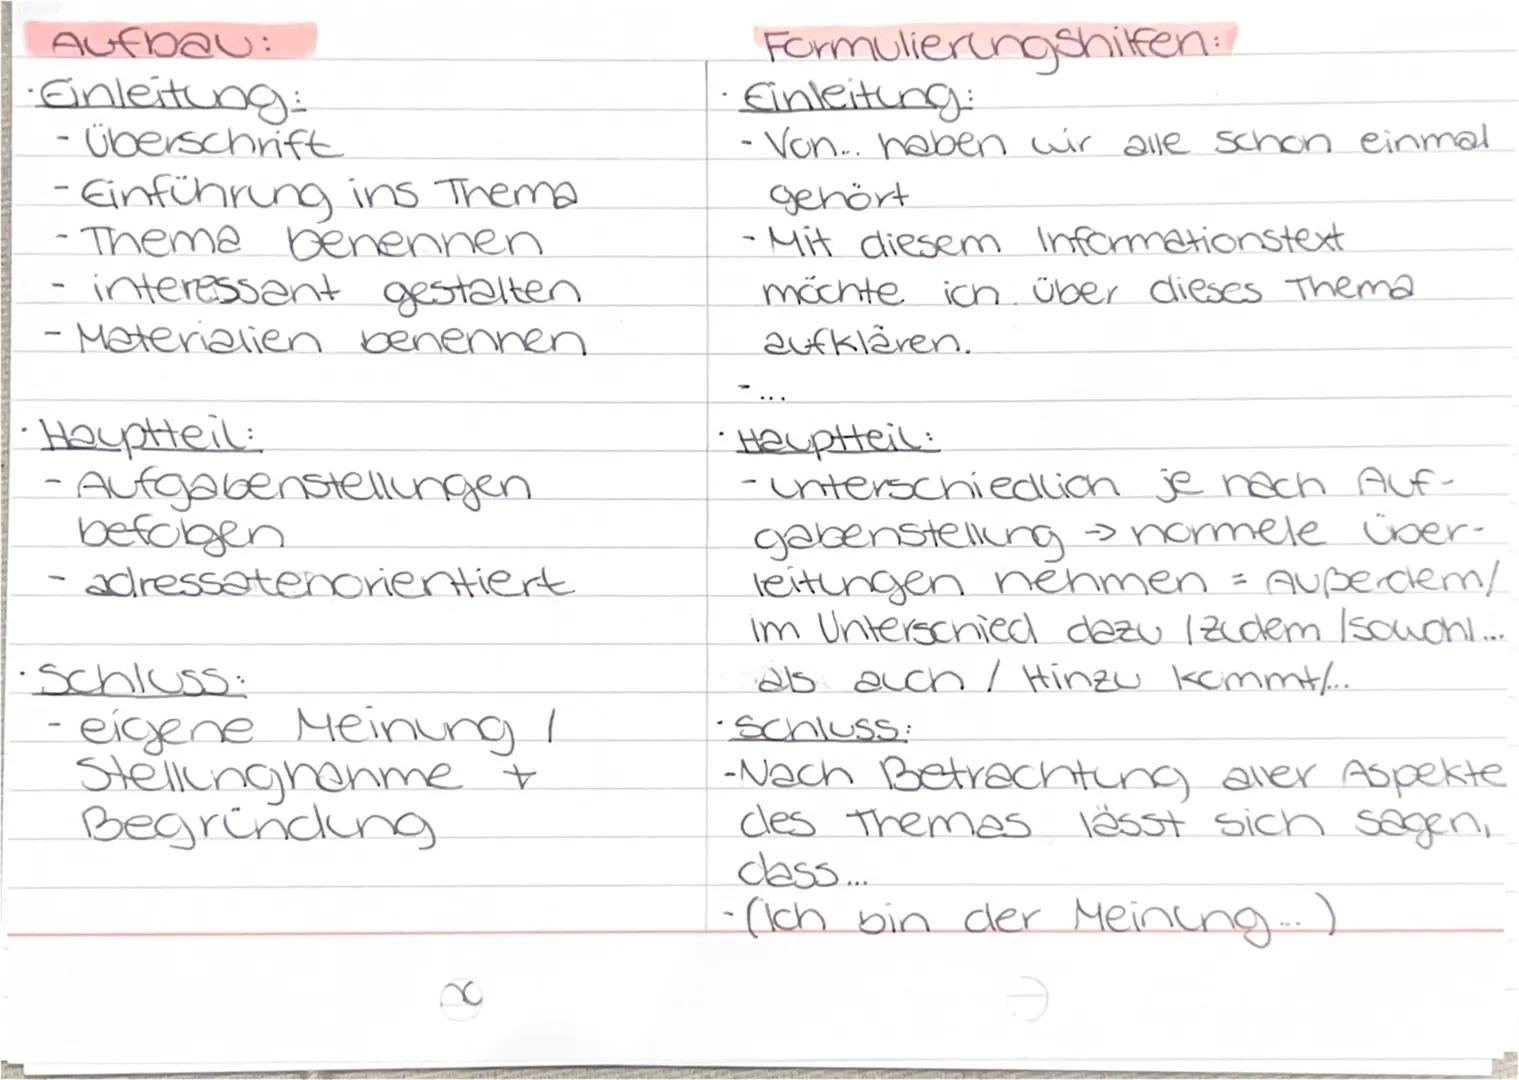 Aufbau:
· Einleitung:
- Überschrift
- Einführung ins Thema
- Thema benennen
- interessant gestalten
- Materialien benennen
· Hauptteil:
- Aufgabenstellungen
befolgen
- adressatenorientiert
· Schluss:
- eigene Meinung /
Stellungnahme +
Begründung
Formulierungshilfen:
· Einleitung:
- Von... haben wir alle schon einmal
gehört
- Mit diesem Informationstext
möchte ich über dieses Thema
aufklären.
- ...
· Hauptteil:
- unterschiedlich je nach Auf-
gabenstellung → normale Über-
leitungen nehmen = Außerdem/
im Unterschied dazu / zudem / sowohl...
als auch / Hinzu kommt/...
· Schluss:
- Nach Betrachtung aller Aspekte
des Themas lässt sich sagen,
dass...
- (Ich bin der Meinung...)